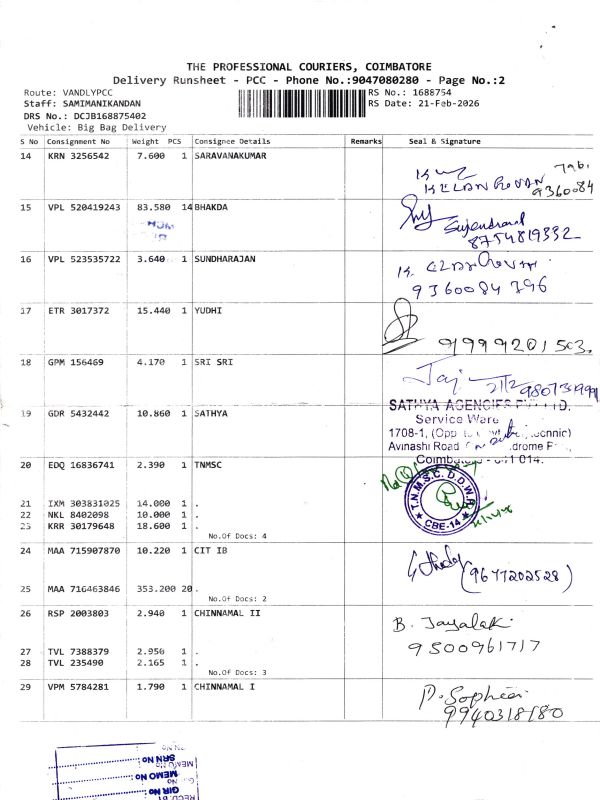 THE PROFESSIONAL COURIERS, COIMBATORE
Delivery Runsheet - PCC - Phone No.:9047080280 - Page No.:2
Route: VANDLYPCC
RS No.: 1688754
Staff: SAMIMANIKANDAN
RS Date: 21-Feb-2026
DRS No.: DCJB168875402
Vehicle: Big Bag Delivery
S No Consignment No Weight PCS Consignee Details Remarks Seal & Signature
14 KRN 3256542 7.600 1 SARAVANAKUMAR
9360084
15 VPL 520419243 83.580 14 BHAKDA
8754819332
16 VPL 523535722 3.640 1 SUNDHARAJAN
9360084396
17 ETR 3017372 15.440 1 YUDHI
91999201503.
18 GPM 156469 4.170 1 SRI SRI
19 GDR 5432442 10.860 1 SATHYA
SATHYA AGENCIES PVT LTD.
Service Ware
1708-1, (Opp
Avinashi Road
20 EDQ 16836741 2.390 1 TNMSC
T.N.M.S.C. D.D.W.
CBE-14
21 IXM 303831025 14.000 1 .
22 NKL 8402098 10.000 1 .
23 KRR 30179648 18.600 1 .
No.Of Docs: 4
24 MAA 715907870 10.220 1 CIT IB
(9677202528)
25 MAA 716463846 353.200 20 .
No.Of Docs: 2
26 RSP 2003803 2.940 1 CHINNAMAL II
B. Jayalak
9500961717
27 TVL 7388379 2.950 1 .
28 TVL 235490 2.165 1 .
No.Of Docs: 3
29 VPM 5784281 1.790 1 CHINNAMAL I
9940318980
SRN No :
MEMO No :
GIR No :